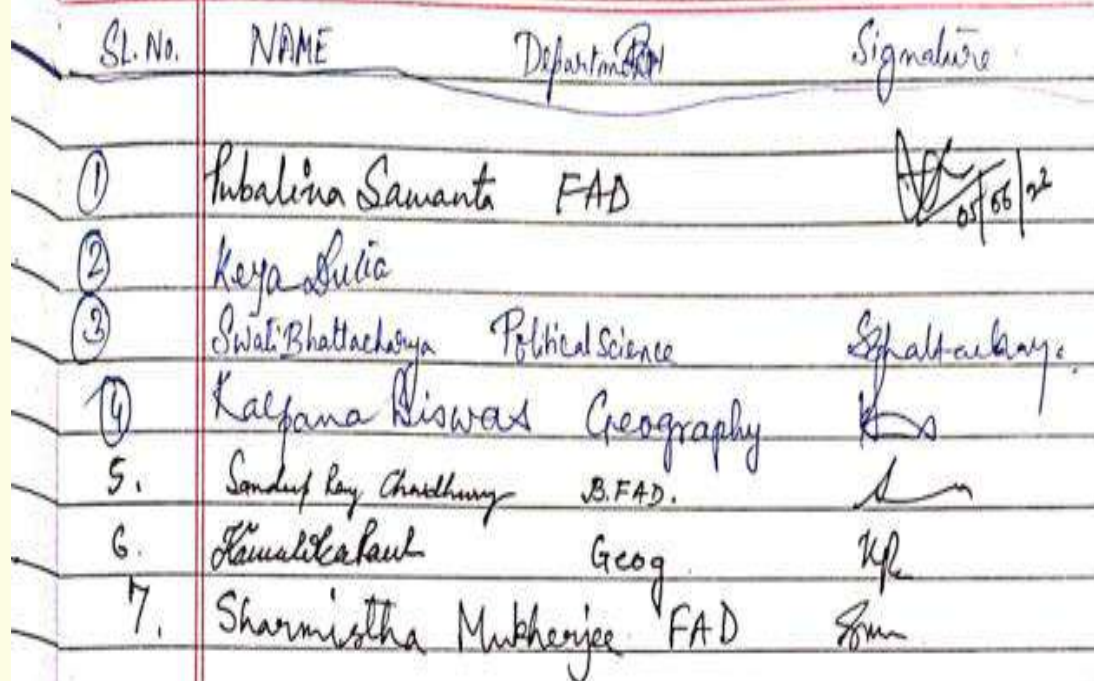 SL. No. NAME Department Signature
1 Pubalina Samanta FAD 05/06/22
2 Keya Dulia
3 Swati Bhattacharya Political Science SBhattacharya.
4 Kalpana Biswas Geography
5. Sandip Ray Chaudhury B.FAD.
6. Kamalika Paul Geog KPL
7. Sharmistha Mukherjee FAD Smu